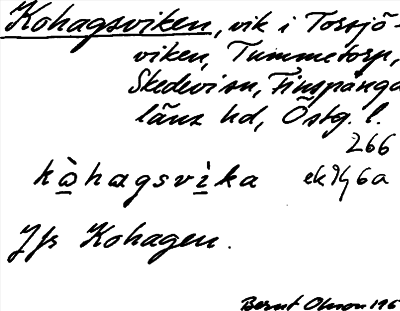 Kohagsviken, vik i Torsjö-
viken, Tummetorp,
Skedevi sn, Finspånga
läns hd, Östg. l.
266
kò̱hagsvì̱ka ek 9G 6a
Jfr Kohagen.
Bernt Olsson 196